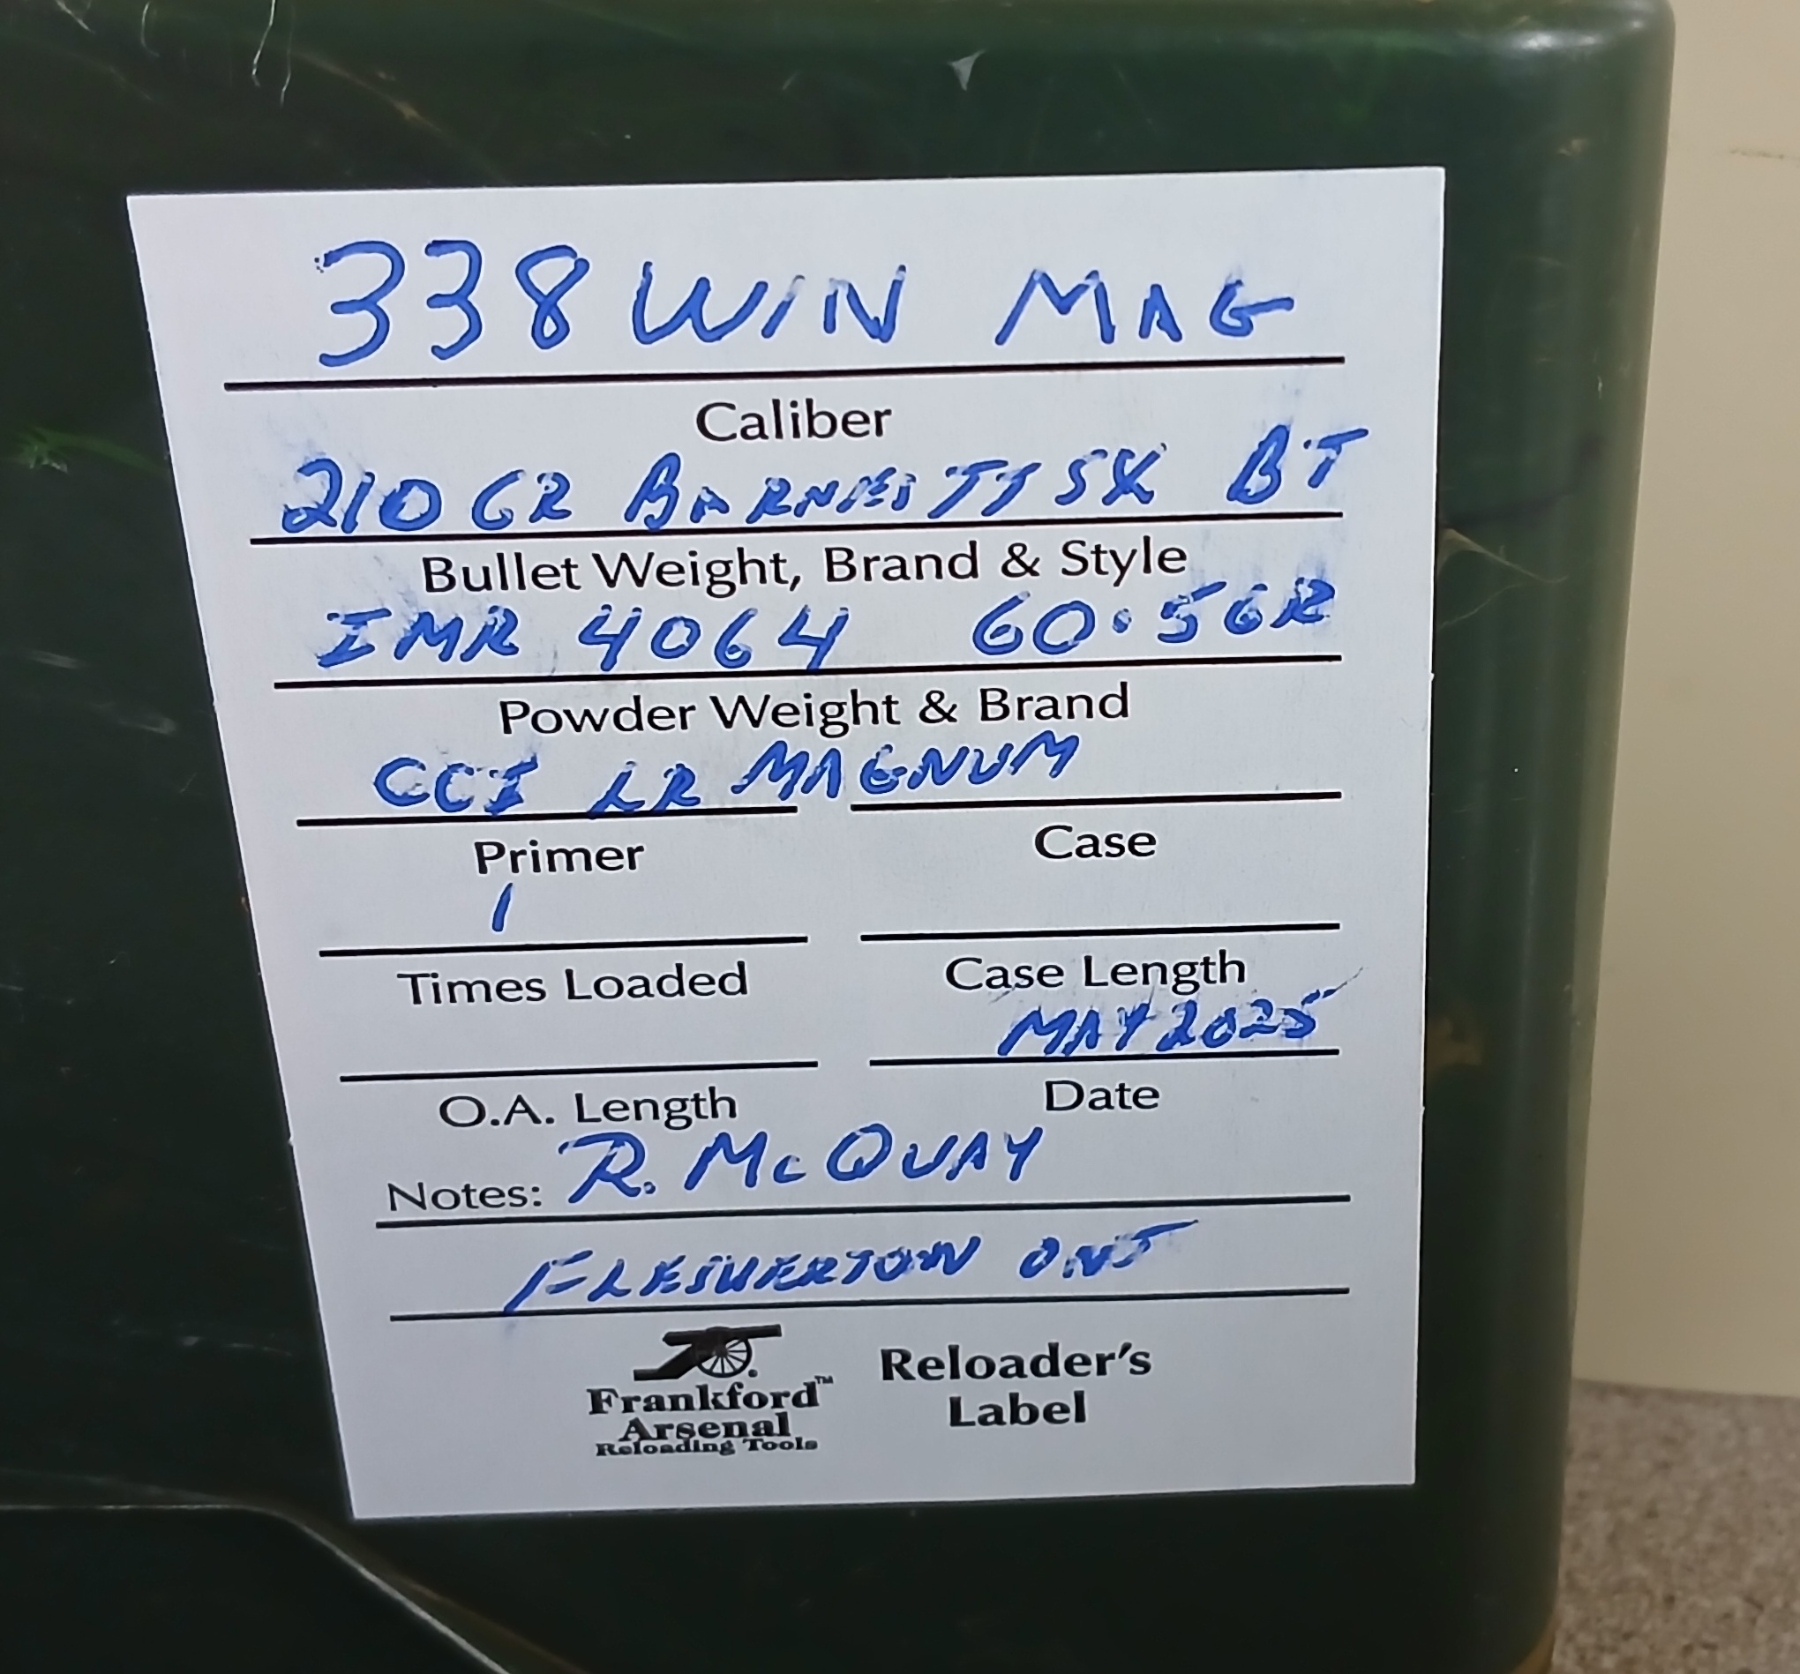 338 WIN MAG
Caliber
210 GR BARNES TTSX BT
Bullet Weight, Brand & Style
IMR 4064 60.5 GR
Powder Weight & Brand
CCI LR MAGNUM
Primer Case
1
Times Loaded Case Length
MAY 2025
O.A. Length Date
Notes: R. McQUAY
FLESHERTON ONT
Frankford™ Arsenal
Reloading Tools
Reloader's
Label